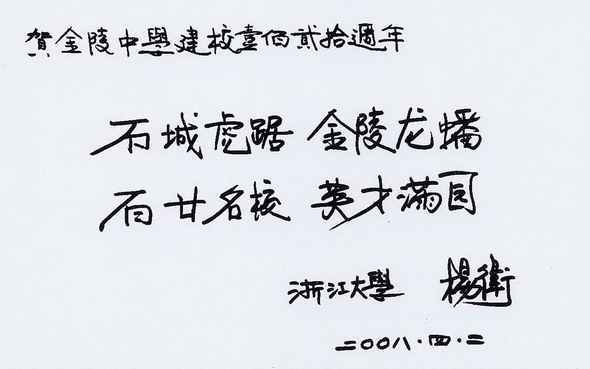 贺金陵中學建校壹佰貳拾週年
石城虎踞 金陵龙蟠
百廿名校 英才满园
浙江大學 楊衛
二〇〇八·四·二